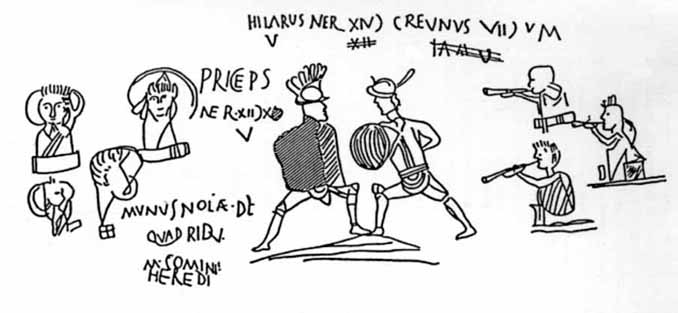 HILARUS NER XIV) CREUNUS VII) V M
V
PRICEPS
NER·XII)X
V
MUNUS NOLÆ·DE
QUADRIDU·
M·COMINI
HEREDI